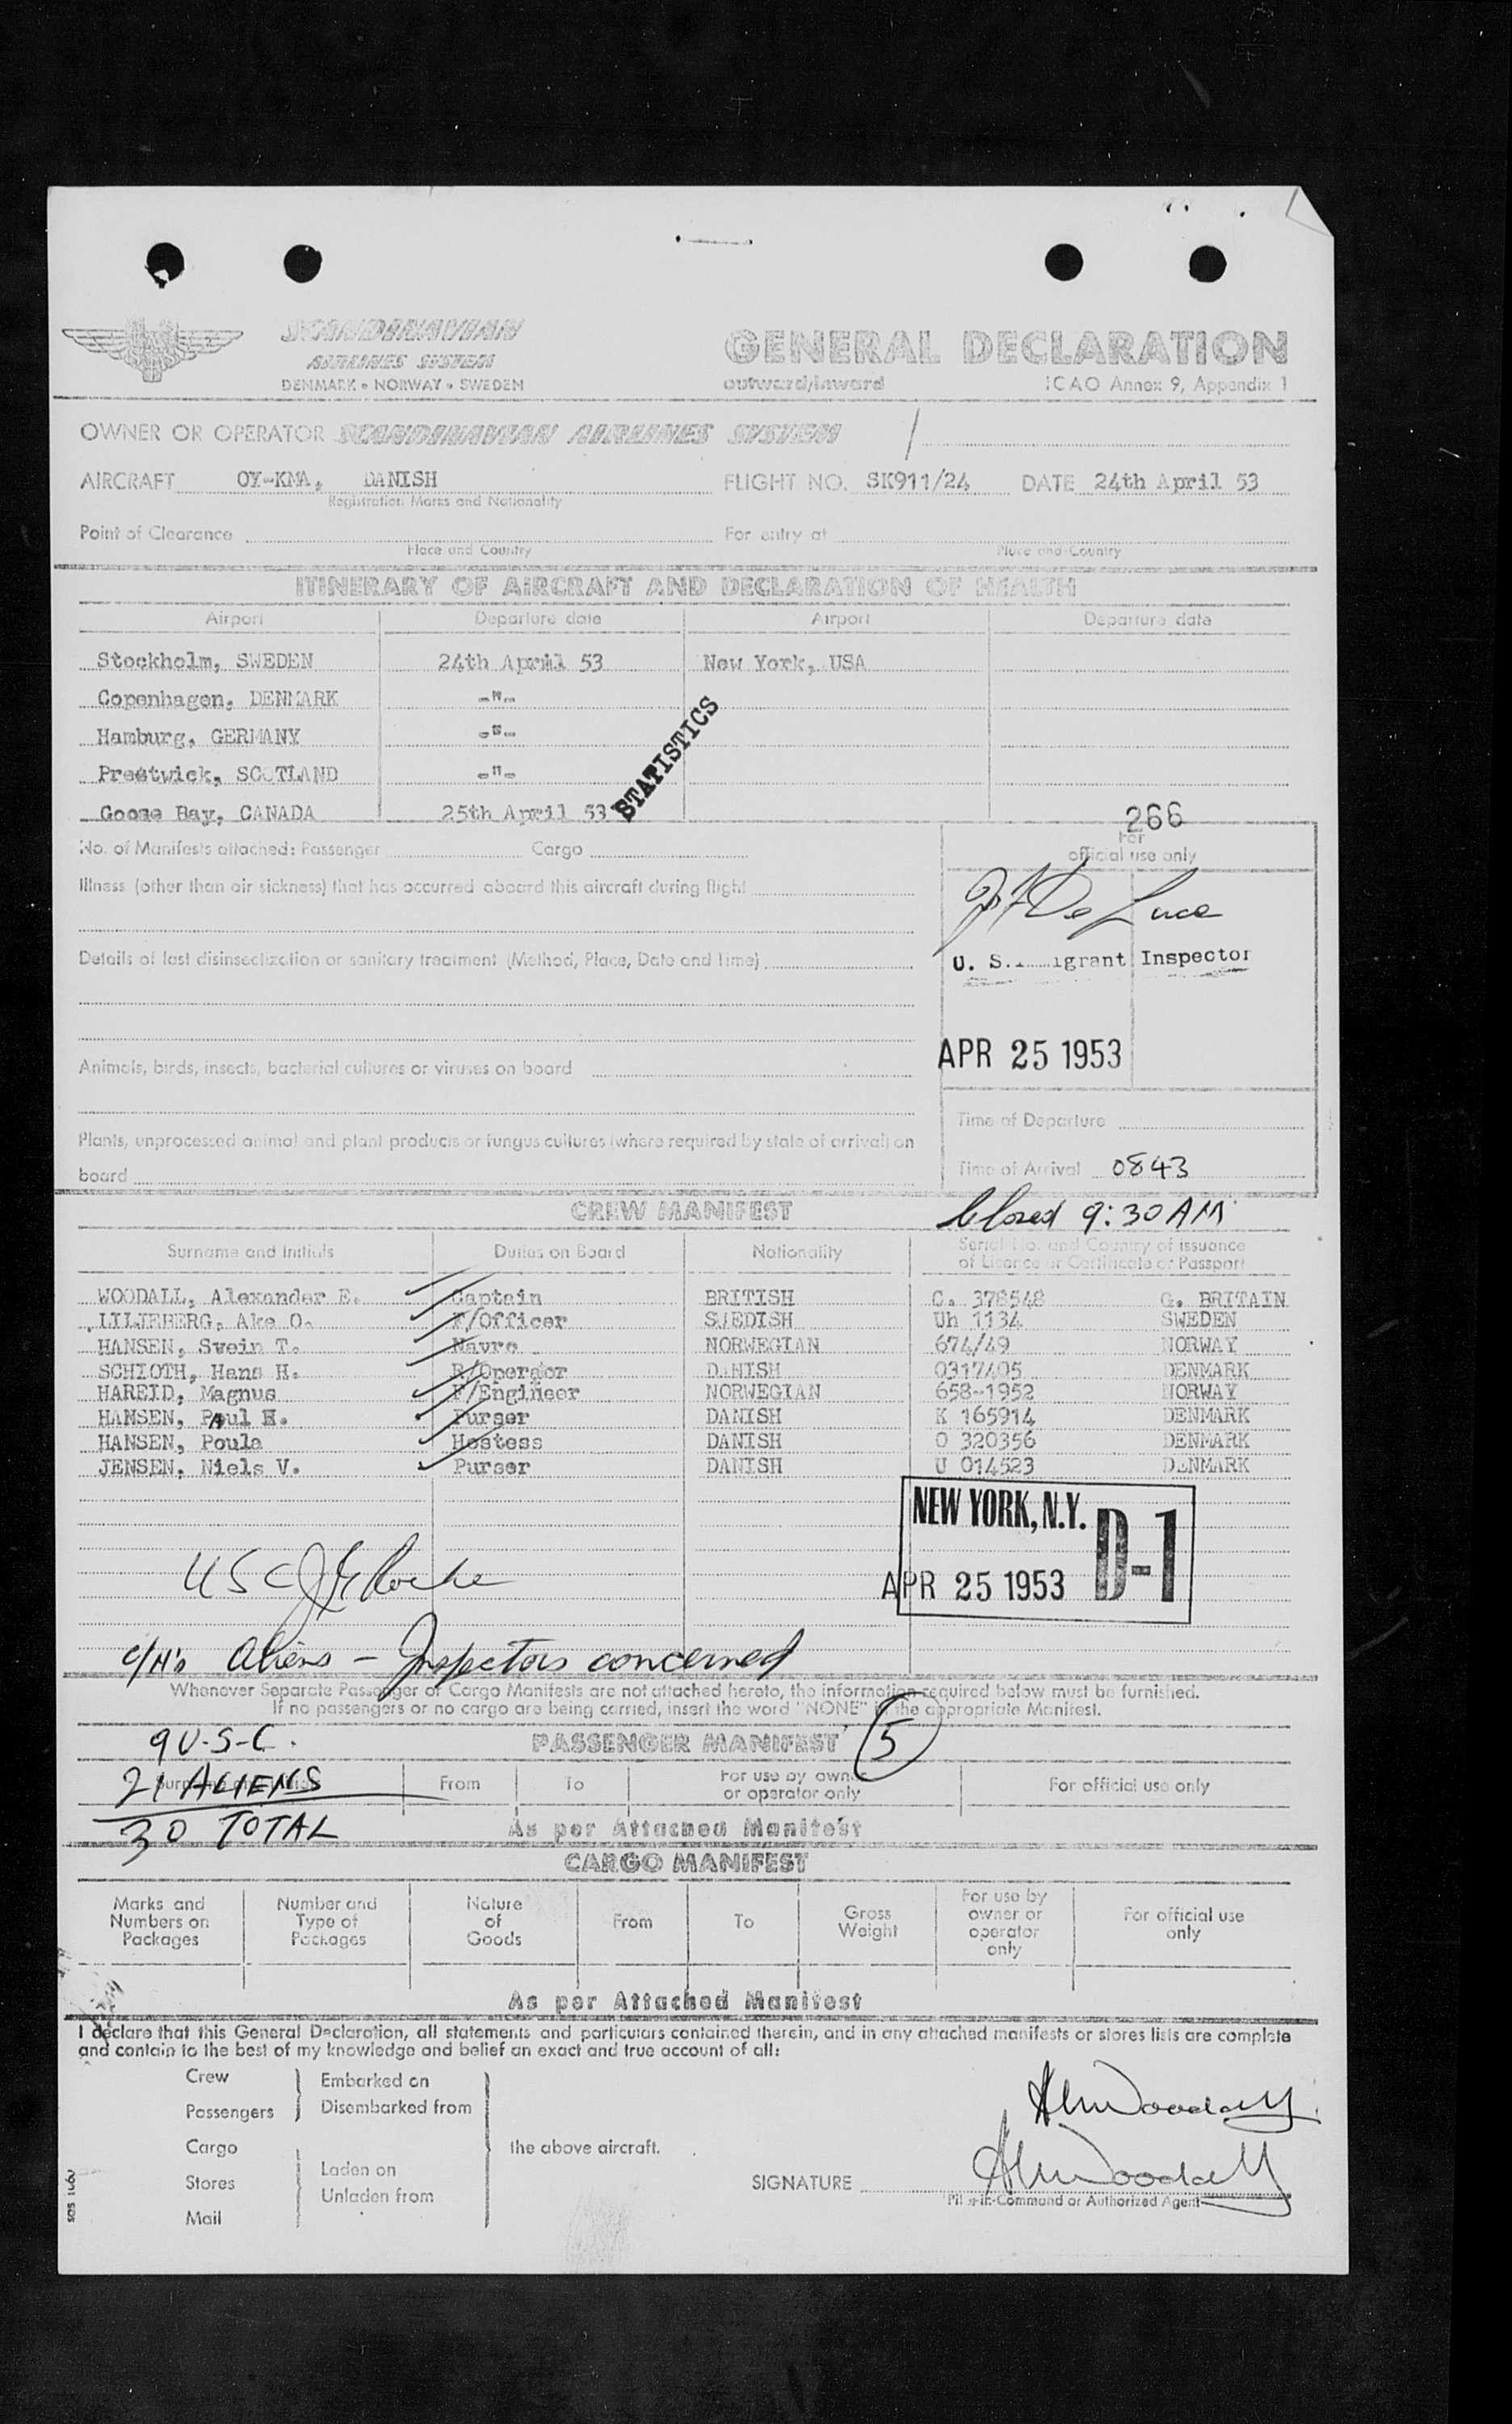 SCANDINAVIAN
AIRLINES SYSTEM
DENMARK • NORWAY • SWEDEN
GENERAL DECLARATION
outward/inward
ICAO Annex 9, Appendix 1
OWNER OR OPERATOR SCANDINAVIAN AIRLINES SYSTEM
AIRCRAFT OY-KMA, DANISH FLIGHT NO. SK911/24 DATE 24th April 53
Registration Marks and Nationality
Point of Clearance For entry at
Place and Country Place and Country
ITINERARY OF AIRCRAFT AND DECLARATION OF HEALTH
Airport Departure date Airport Departure date
Stockholm, SWEDEN 24th April 53 New York, USA
Copenhagen, DENMARK -"-
Hamburg, GERMANY -"-
Prestwick, SCOTLAND -"-
Goose Bay, CANADA 25th April 53
STATISTICS
266
No. of Manifests attached: Passenger Cargo
For
official use only
Illness (other than air sickness) that has occurred aboard this aircraft during flight
De Luca
Details of last disinsectization or sanitary treatment (Method, Place, Date and Time)
U. S. igrant Inspector
APR 25 1953
Animals, birds, insects, bacterial cultures or viruses on board
Time of Departure
Plants, unprocessed animal and plant products or fungus cultures (where required by state of arrival) on
board
Time of Arrival 0843
CREW MANIFEST
Closed 9:30 AM
Surname and Initials Duties on Board Nationality Serial No. and Country of issuance
of Licence or Certificate or Passport
WOODALL, Alexander E. Captain BRITISH C. 378548 G. BRITAIN
LILJEBERG, Ake O. F/Officer SWEDISH Uh 1134 SWEDEN
HANSEN, Svein T. Navro NORWEGIAN 674/49 NORWAY
SCHIOTH, Hans H. R/Operaor DANISH 0317405 DENMARK
HAREID, Magnus F/Engineer NORWEGIAN 658-1952 NORWAY
HANSEN, Paul H. Purser DANISH K 165914 DENMARK
HANSEN, Poula Hostess DANISH O 320356 DENMARK
JENSEN, Niels V. Purser DANISH U 014523 DENMARK
NEW YORK, N.Y.
D-1
APR 25 1953
USC
c/H's Aliens - Inspectors concerned
Whenever Separate Passenger or Cargo Manifests are not attached hereto, the information required below must be furnished.
If no passengers or no cargo are being carried, insert the word "NONE" in the appropriate Manifest.
9 U-S-C.
PASSENGER MANIFEST
5
21 ALIENS
From To For use by owner
or operator only
For official use only
30 TOTAL
As per Attached Manifest
CARGO MANIFEST
Marks and
Numbers on
Packages
Number and
Type of
Packages
Nature
of
Goods
From
To
Gross
Weight
For use by
owner or
operator
only
For official use
only
As per Attached Manifest
I declare that this General Declaration, all statements and particulars contained therein, and in any attached manifests or stores lists are complete
and contain to the best of my knowledge and belief an exact and true account of all:
Crew
Passengers
Embarked on
Disembarked from
Cargo
Stores
Mail
Laden on
Unladen from
the above aircraft.
Woodall
SIGNATURE Woodall
Pilot-in-Command or Authorized Agent